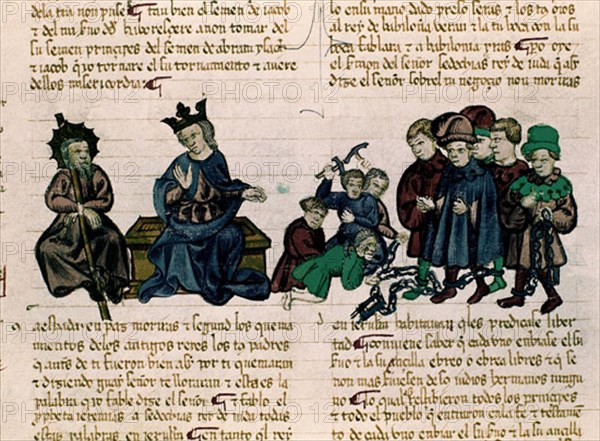 de la tra non puse Tan bien el semen de iacob
e del mi suo dd habore legere a non tomar del
su semen principes del semen de abram ysaac
e iacob qo tornare el su tornamiento e auere
dellos misericordia
lo en su mano dado preso seras e los tos oios
al rey de babilonia veran e la tu boca con la su
boca fablara e a babilonia yras Po oye
el smon del señor sedechias rey de iuda q as
dize el señor sobre l tu negocio non moriras
a espada en paz moriras e segund los quema
mientos de los antigos reyes los tos padres
q antes de ti fueron bien asi por ti quemaran
e diziendo guay señor te lloraran e esta es la
palabra q yo fable dize el señor E fablo el
ppheta ieremias a sedechias rey de iuda todas
estas palabras en ierlm En tanto ql rey
en ierlm habitauan q les predicase liber
tad Conuiene saber q cada uno enbiase el su
suo e la su ancilla ebreo o ebrea libres e q se
non mas fuesen de los iudios hermanos ningu
no Lo qual rescibieron todos los principes
e todo el pueblo q entraron en la fe e testame
to de cada uno enbiar el su suo e la su ancilla